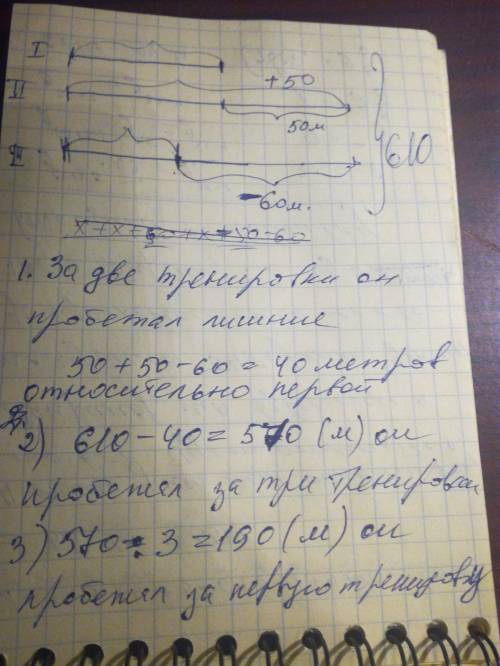 I
+50
II
50м
III
610
-60м.
x+x+50+x+50-60
1. За две тренировки он
пробежал лишние
50+50-60=40 метров
относительно первой
2) 610-40=570 (м) он
пробежал за три тренировки
3) 570:3=190 (м) он
пробежал за первую тренировку